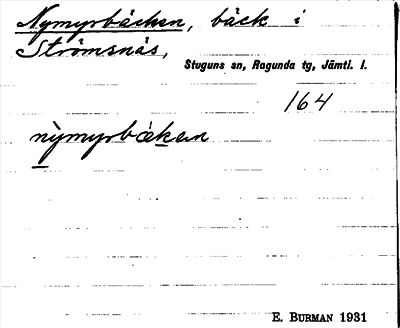 Nymyrbäcken, bäck i
Strömsnäs,
Stuguns sn, Ragunda tg, Jämtl. l.
164
nỳmyrbäken
E. BURMAN 1931